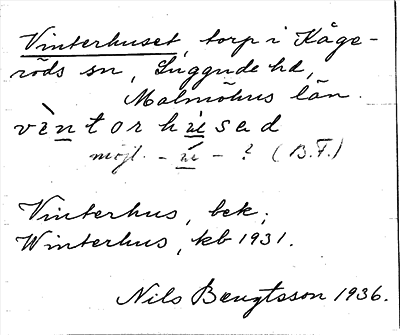 Vinterhuset, torp i Kåge-
röds sn, Luggude hd,
Malmöhus län.
vìntorhúsed
möjl. - ú - ? (B.F.)
Vinterhus, bek.;
Winterhus, kb 1931.
Nils Bengtsson 1936.